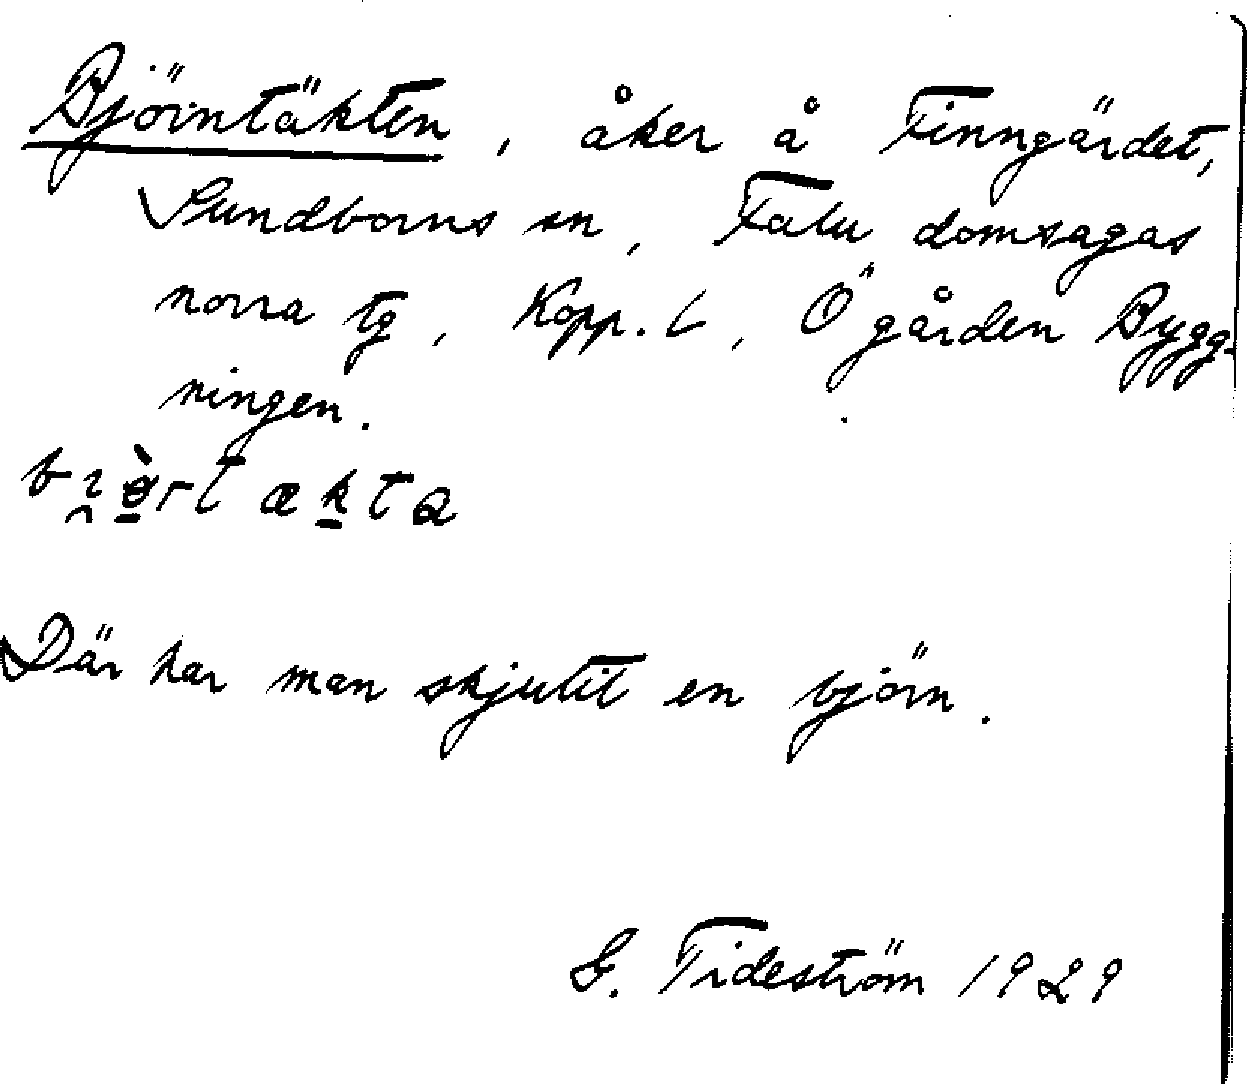 Björntäkten, åker å Finngärdet,
Sundborns sn, Falu domsagas
norra tg, Kopp. l, Ö gården Bygg-
ningen.
Där har man skjutit en björn.
G. Tideström 1929